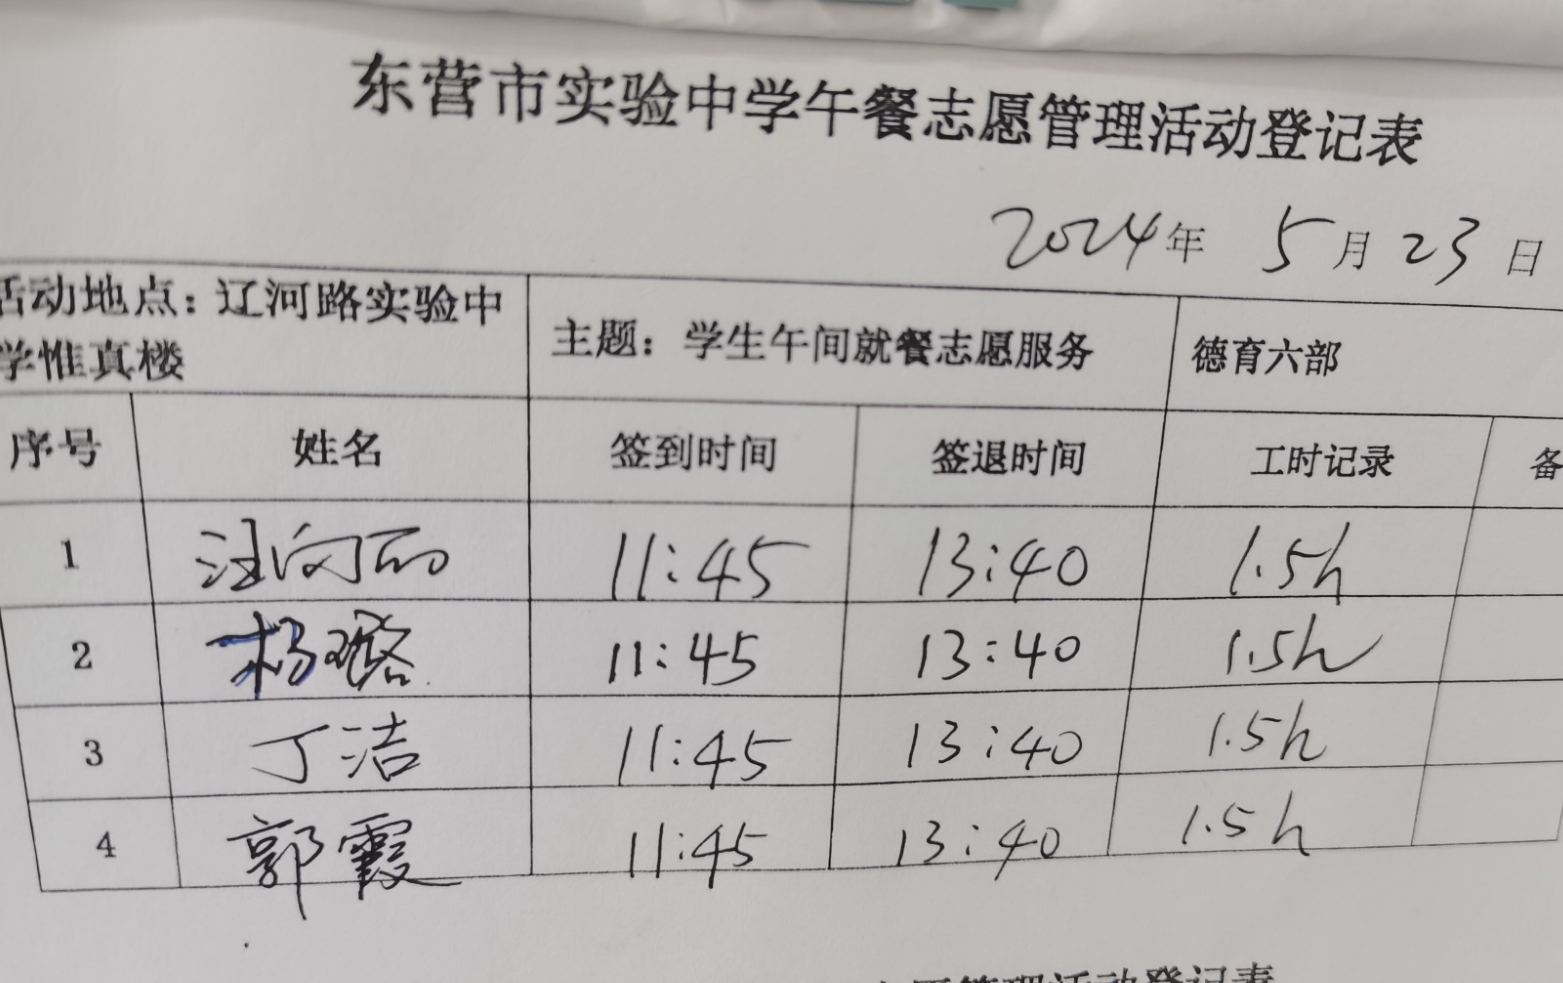 东营市实验中学午餐志愿管理活动登记表
2024年 5月23日
活动地点:辽河路实验中
学惟真楼
主题:学生午间就餐志愿服务
德育六部
序号 姓名 签到时间 签退时间 工时记录 备
1 汪向丽 11:45 13:40 1.5h
2 杨璐 11:45 13:40 1.5h
3 丁洁 11:45 13:40 1.5h
4 郭霞 11:45 13:40 1.5h
志愿管理活动登记表